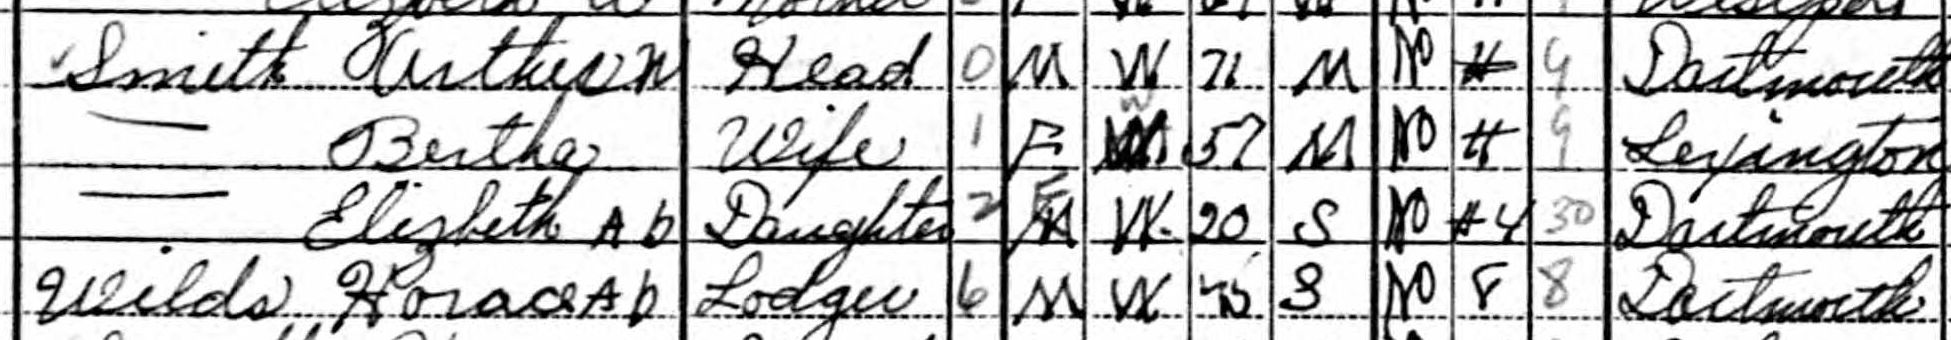 Smith Arthur W Head 0 M W 71 M No H 9 Dartmouth
— Bertha Wife 1 F W 57 M No H 9 Lexington
— Elizbeth Ab Daughter 2 F W 20 S No H4 30 Dartmouth
Wilds Horace Ab Lodger 6 M W S No 8 8 Dartmouth